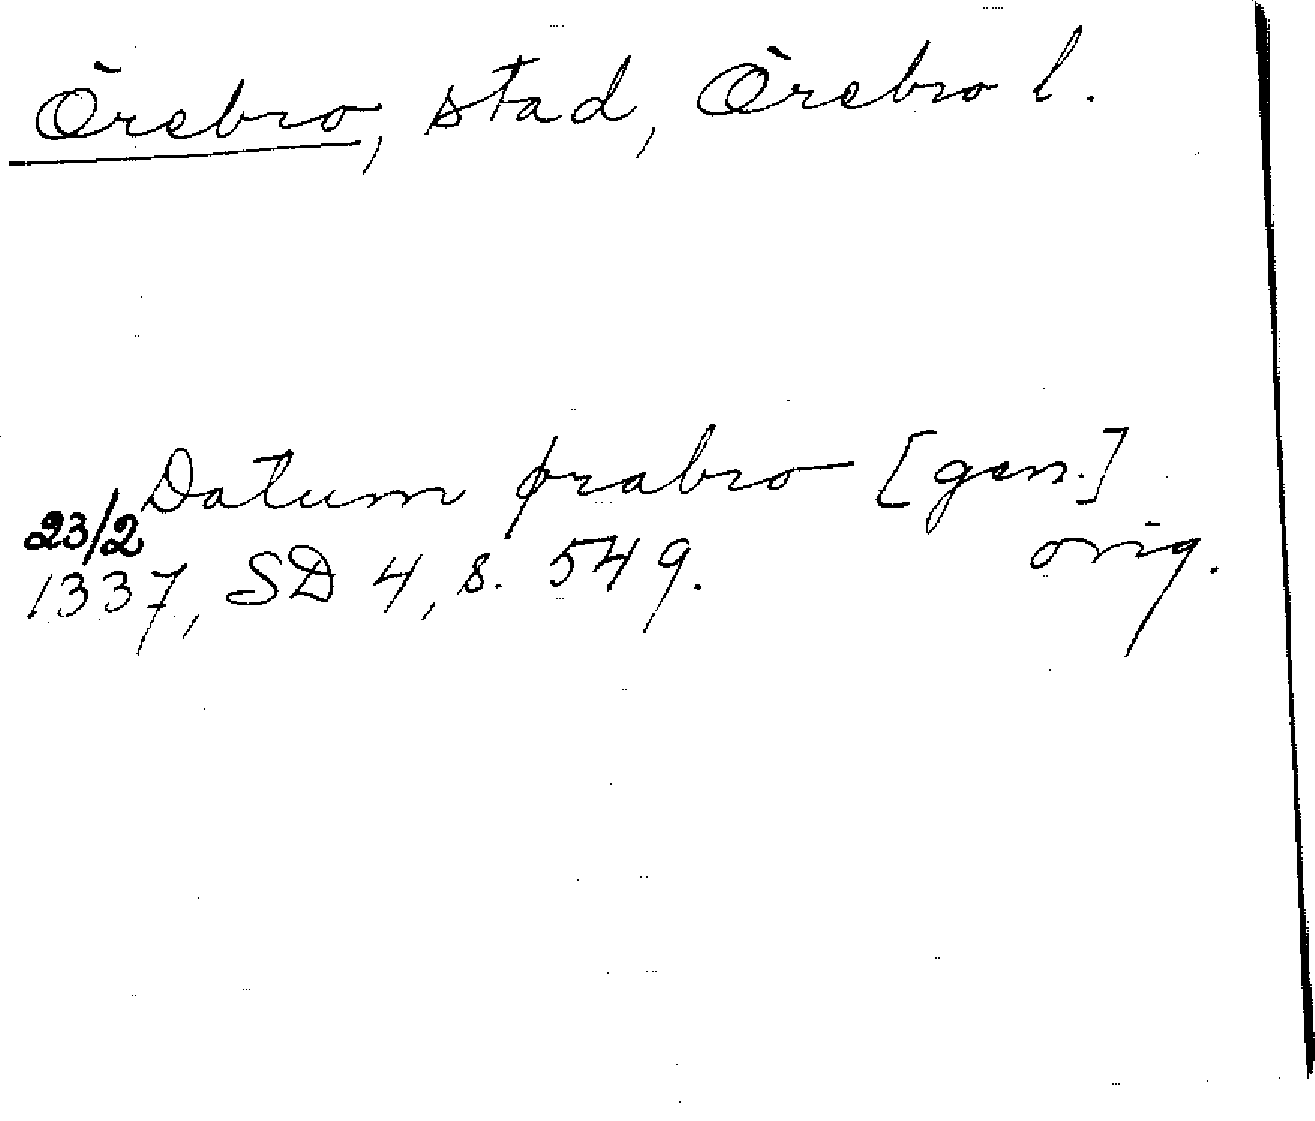 Örebro, stad, Örebro l.
Datum ørabro [gen.]
23/2
1337, SD 4, s. 549. orig.